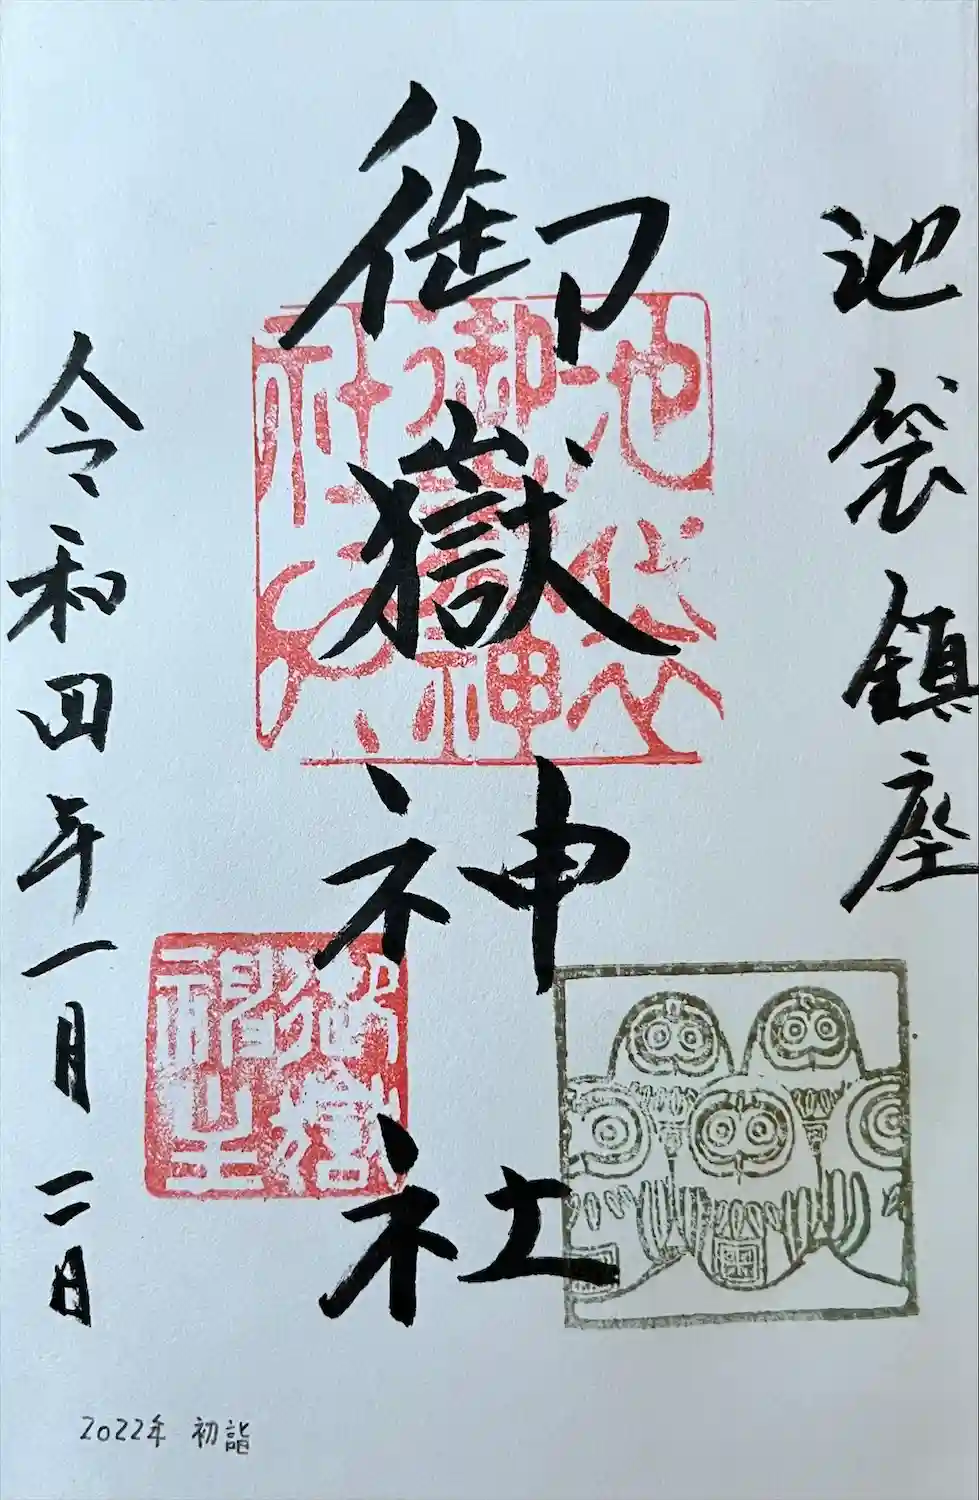 池袋鎮座
御嶽神社
令和四年一月二日
池袋
御嶽神
社之印
2022年 初詣